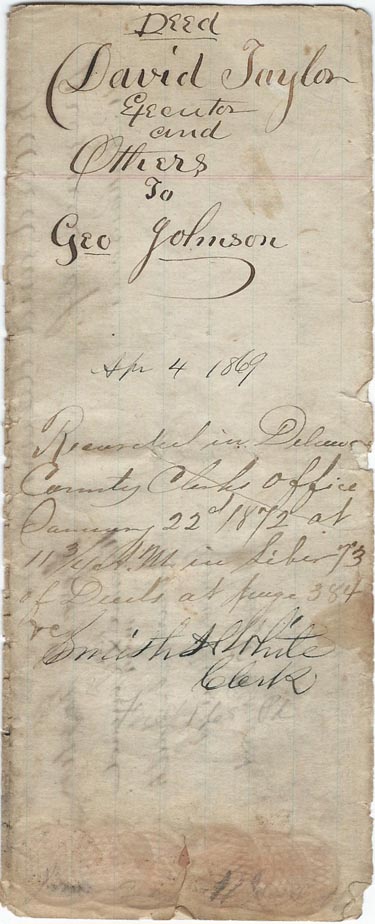 Deed
David Taylor
Executor
and
Others
To
Geo Johnson
Apr 4 1869
Recorded in Delaware
County Clerks office
January 22d 1872 at
11 3/4 A.M. in Liber 73
of Deeds at page 384
White
Clerk